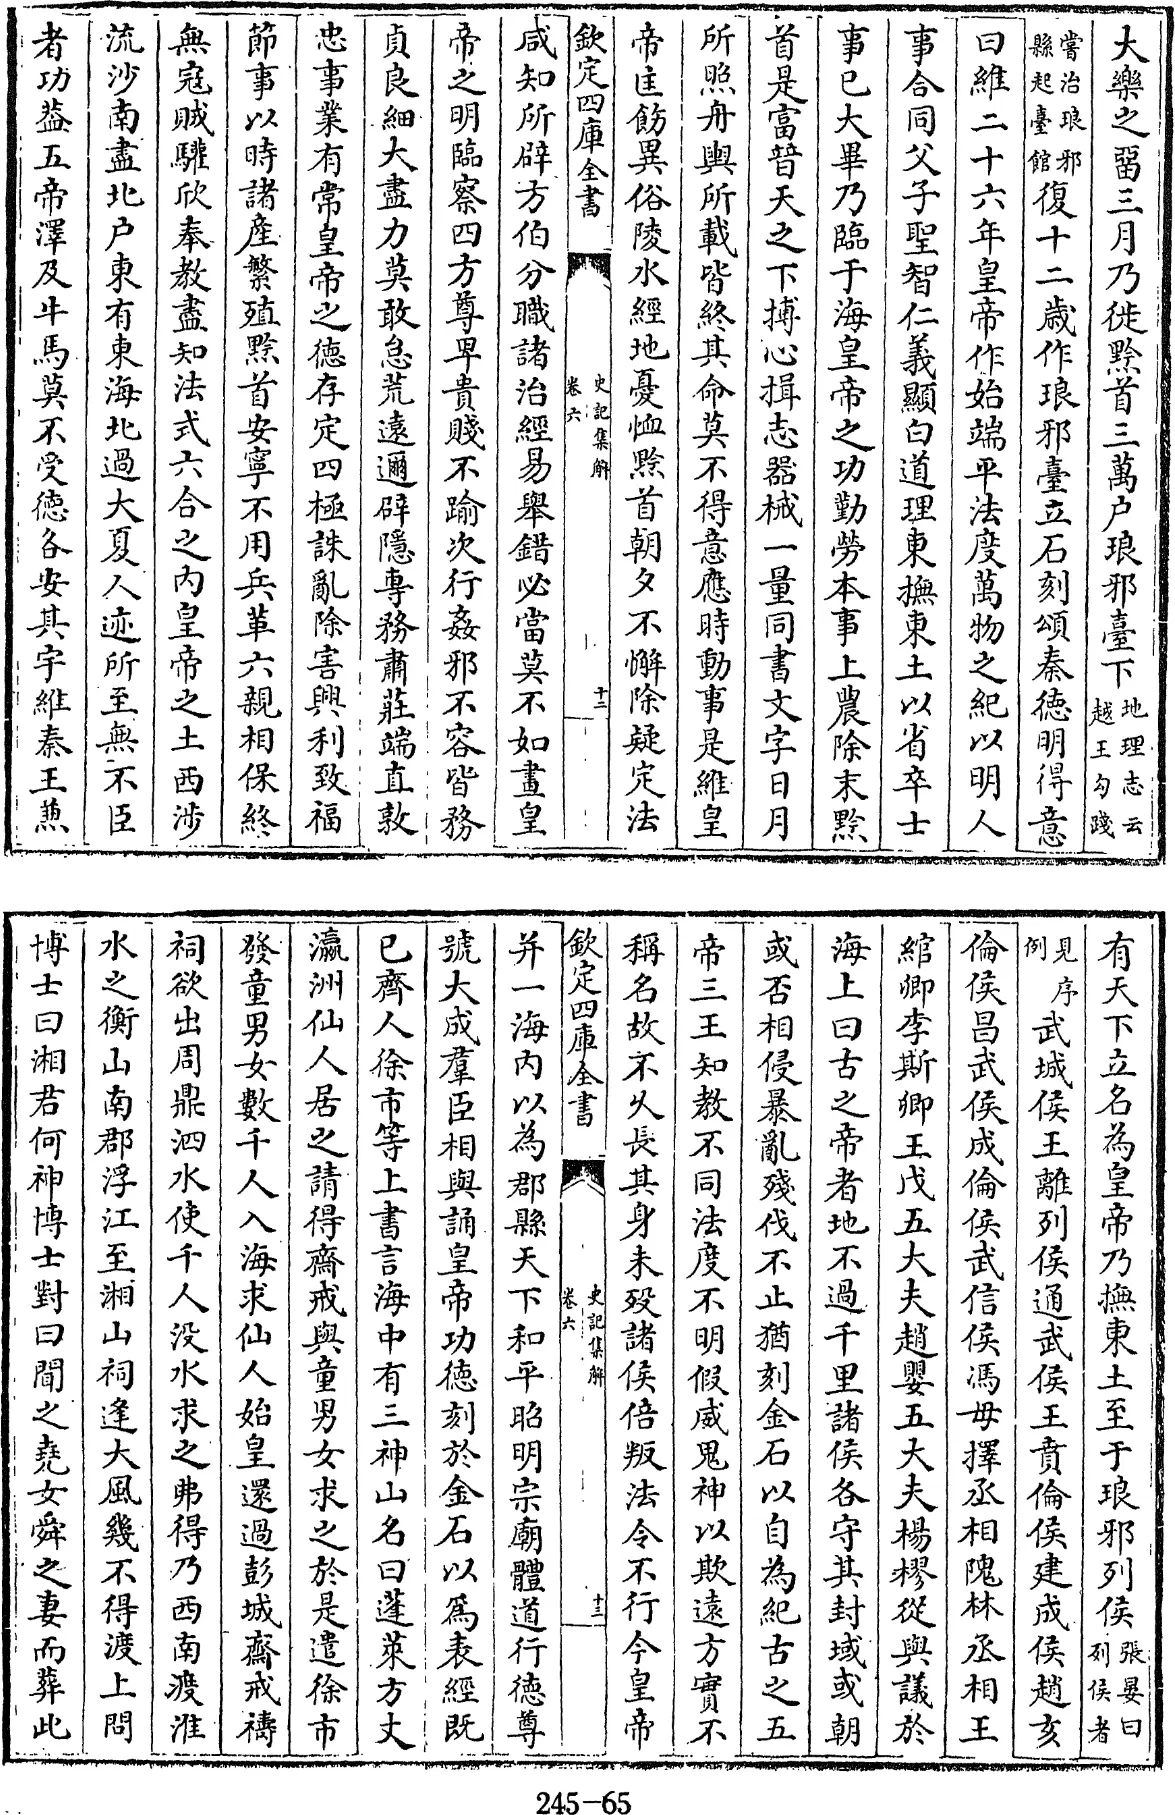 大樂之留三月乃徙黔首三萬户琅邪臺下地理志云越王勾踐
嘗治琅邪縣起臺館復十二歲作琅邪臺立石刻頌秦德明得意
曰維二十六年皇帝作始端平法度萬物之紀以明人
事合同父子聖智仁義顯白道理東撫東土以省卒士
事已大畢乃臨于海皇帝之功勤勞本事上農除末黔
首是富普天之下摶心揖志器械一量同書文字日月
所照舟輿所載皆終其命莫不得意應時動事是維皇
帝匡飭異俗陵水經地憂恤黔首朝夕不懈除疑定法
欽定四庫全書 史記集解 卷六 十二
咸知所辟方伯分職諸治經易舉錯必當莫不如畫皇
帝之明臨察四方尊卑貴賤不踰次行姦邪不容皆務
貞良細大盡力莫敢怠荒遠邇辟隱專務肅莊端直敦
忠事業有常皇帝之德存定四極誅亂除害興利致福
節事以時諸産繁殖黔首安寧不用兵革六親相保終
無寇賊驩欣奉教盡知法式六合之内皇帝之土西涉
流沙南盡北户東有東海北過大夏人迹所至無不臣
者功葢五帝澤及牛馬莫不受德各安其宇維秦王兼
有天下立名為皇帝乃撫東土至于琅邪列侯張晏曰列侯者
見序例武城侯王離列侯通武侯王賁倫侯建成侯趙亥
倫侯昌武侯成倫侯武信侯馮毋擇丞相隗林丞相王
綰卿李斯卿王戊五大夫趙嬰五大夫楊樛從與議於
海上曰古之帝者地不過千里諸侯各守其封域或朝
或否相侵暴亂殘伐不止猶刻金石以自為紀古之五
帝三王知教不同法度不明假威鬼神以欺遠方實不
稱名故不乆長其身未歿諸侯倍叛法令不行今皇帝
欽定四庫全書 史記集解 卷六 十三
并一海内以為郡縣天下和平昭明宗廟體道行德尊
號大成羣臣相與誦皇帝功德刻於金石以為表經既
已齊人徐市等上書言海中有三神山名曰蓬萊方丈
瀛洲仙人居之請得齋戒與童男女求之於是遣徐市
發童男女數千人入海求仙人始皇還過彭城齋戒禱
祠欲出周鼎泗水使千人没水求之弗得乃西南渡淮
水之衡山南郡浮江至湘山祠逢大風幾不得渡上問
博士曰湘君何神博士對曰聞之堯女舜之妻而葬此
245-65